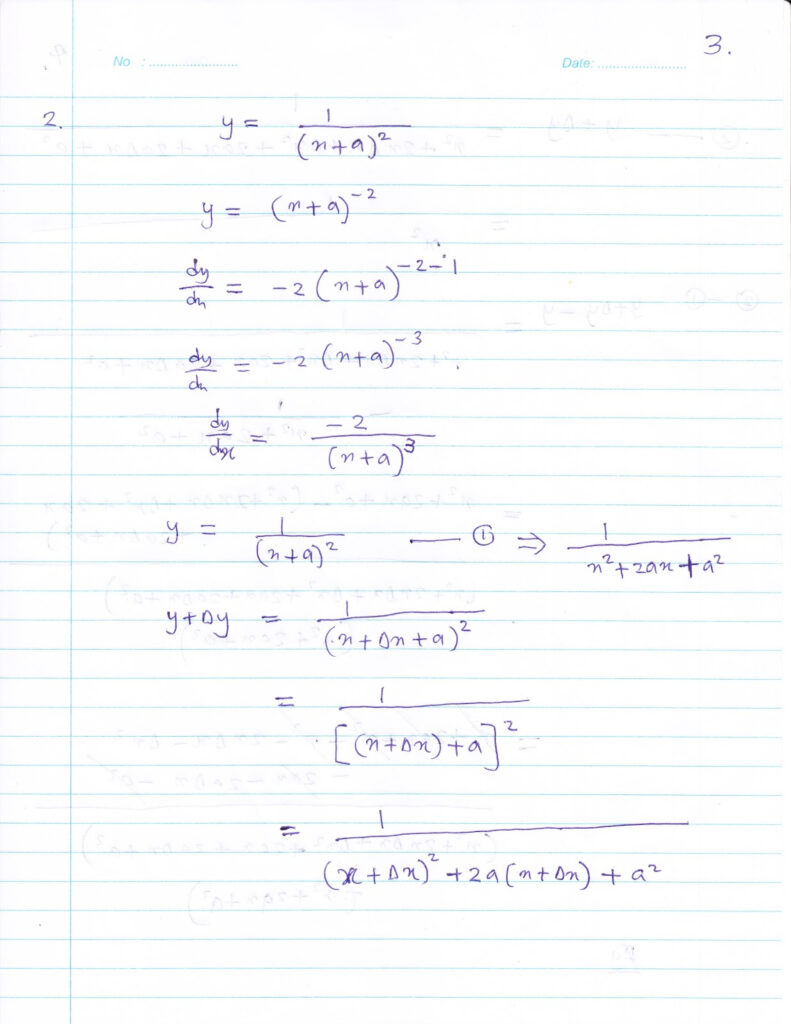 3.
No : ........................ Date: ........................
2. y = 1/(x+a)²
y = (x+a)⁻²
dy/dx = -2(x+a)⁻²⁻¹
dy/dx = -2(x+a)⁻³.
dy/dx = -2/(x+a)³
y = 1/(x+a)² —— ① ⇒ 1/(x²+2ax+a²)
y+Δy = 1/(x+Δx+a)²
= 1/[(x+Δx)+a]²
= 1/((x+Δx)²+2a(x+Δx)+a²)